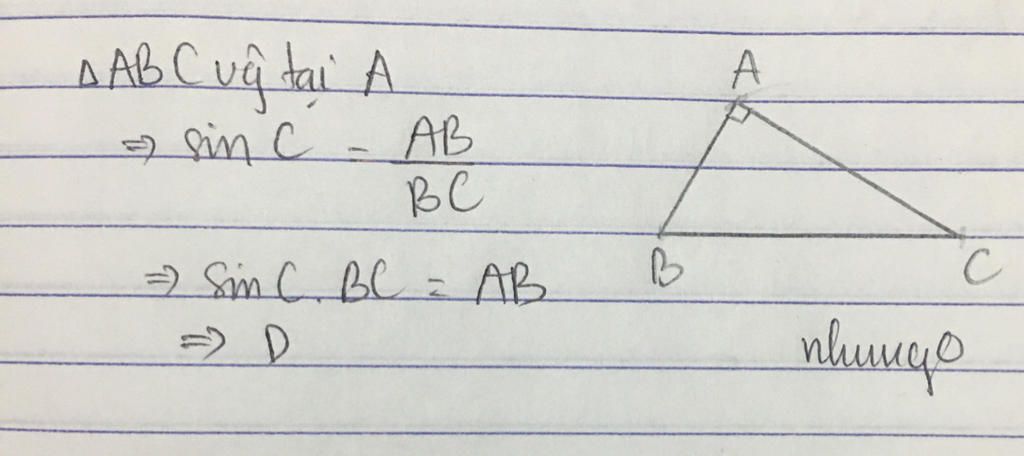 ΔABC vg̃ tại A
⇒ sin C = AB/BC
⇒ sin C . BC = AB
⇒ D
A
B
C
nhungo